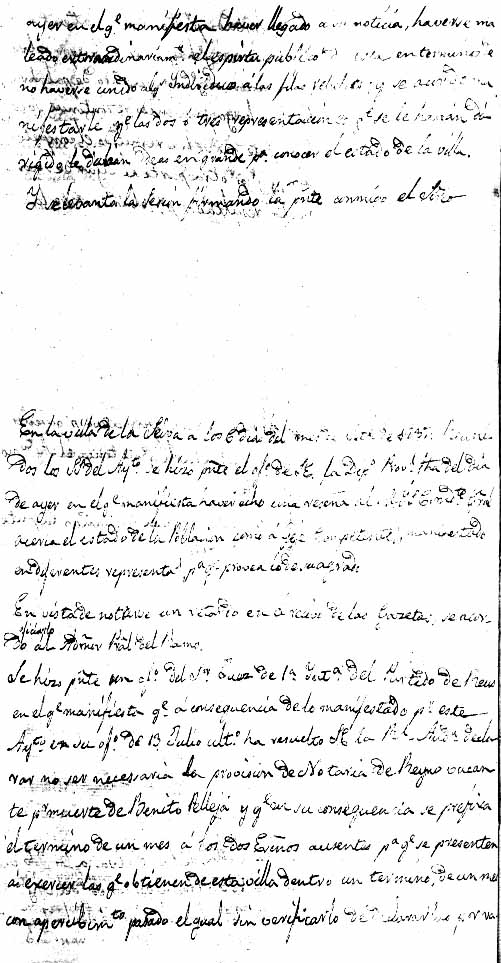 ayer en el qe. manifiesta haver llegado a su noticia, haverse ma
leado extraordinariamte. el espiritu publico en terminos
no haverse unido algn. Individuo a las filas rebeldes, y se acordó ma
nifestarle qe. las dos ó tres representaciones qe. se le harán di
rigido le darán ideas en grande pa. conocer el estado de la villa.
Y se levanta la sesion firmando la pnte. conmigo el Srio
En la villa de la Selva a los 6 dia del mes de
dos los Srs. del Ayto. se hizo pnte. el ofo. de la Dipn. Provl. fha. del dia
de ayer en el qe. manifiesta haver echo una reseña al
acerca el estado de la Poblacion como á Gefe competente, manifestado
en diferentes representas. pa. qe. provea lo de su agrado.
En vista de notarse un retardo en el recivo de las Gazetas, se acor-
dó oficiarlo al Admor. Pral. del Ramo.
Se hizo pnte. un ofo. del Sor. Juez de 1a. Insta. del Partido de Reus
en el qe. manifiesta qe. á consequencia de lo manifestado pr. este
Ayto. en su ofo. de 13 Julio ulto. ha resuelto la Rl. Auda. decla
rar no ser necesaria la provision de Notaria de Reyno vacan
te pr. muerte de Benito Pellejá y qe. en su consequencia se prefixa
el termino de un mes á los dos Esnos. ausentes pa. qe. se presenten
a exercer las qe. obtienen de esta villa dentro un termino, de un mes
con apercibimto. pasado el qual sin verificarlo de declararlas pr. va